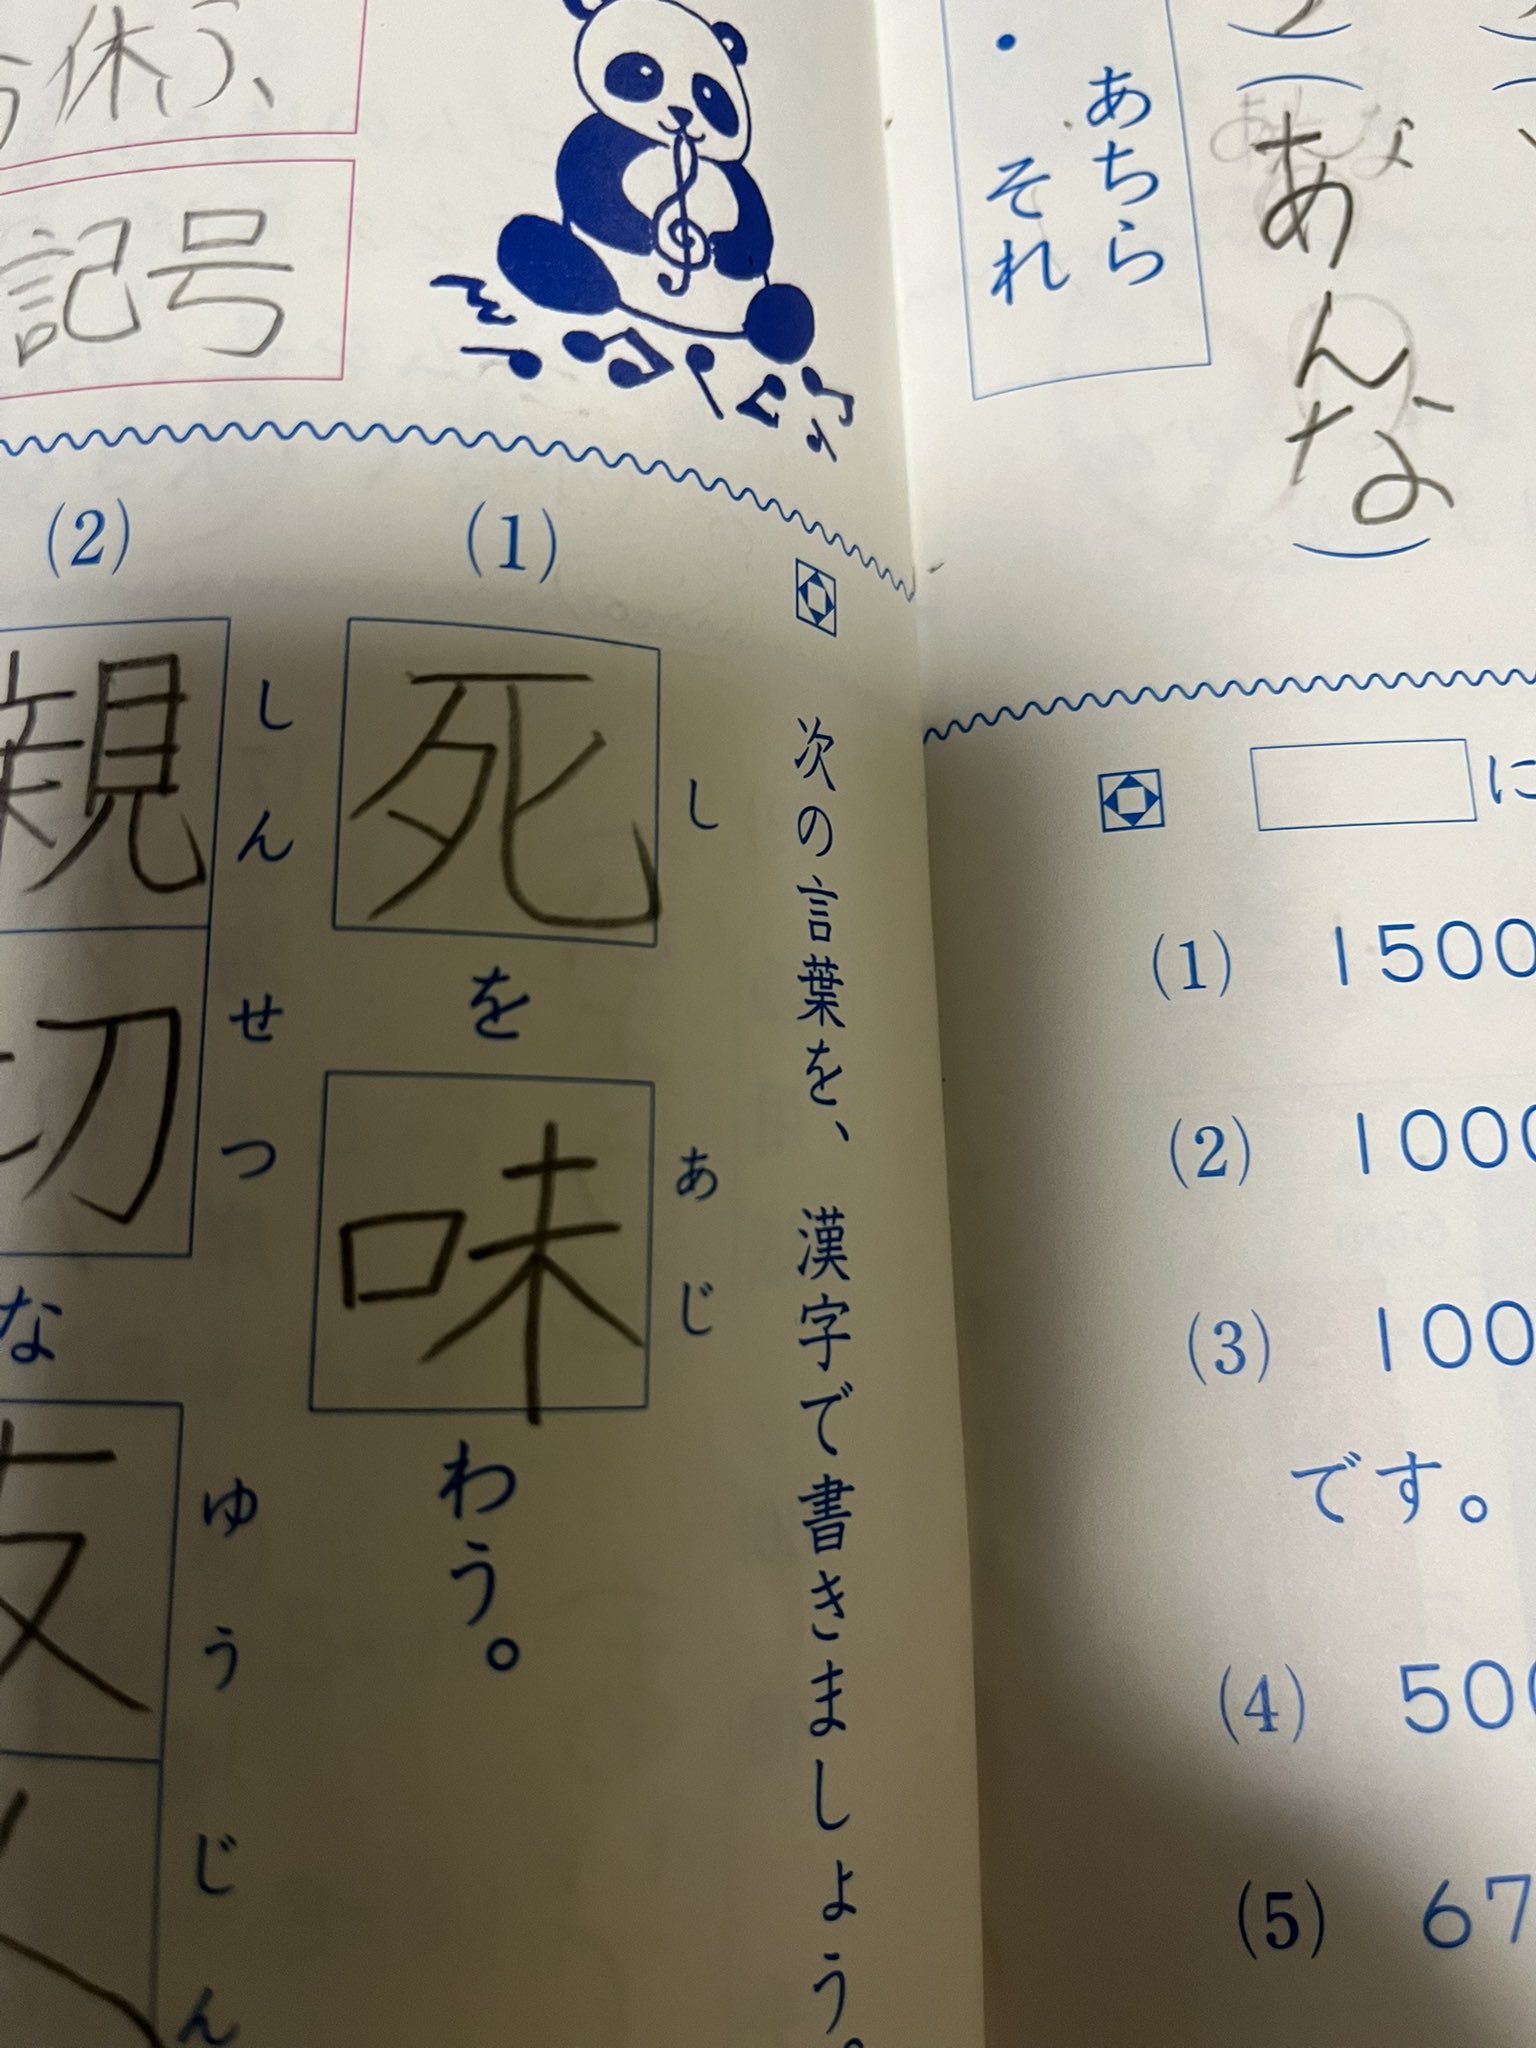 あんな
あちら
・それ
に
(1) 1500
(2) 1000
(3) 100
です。
(4) 500
(5) 67
休
記号
次の言葉を、漢字で書きましょう。
(1)
し
死を
あじ
味わう。
(2)
しんせつ
親切な
ゆうじん
友人